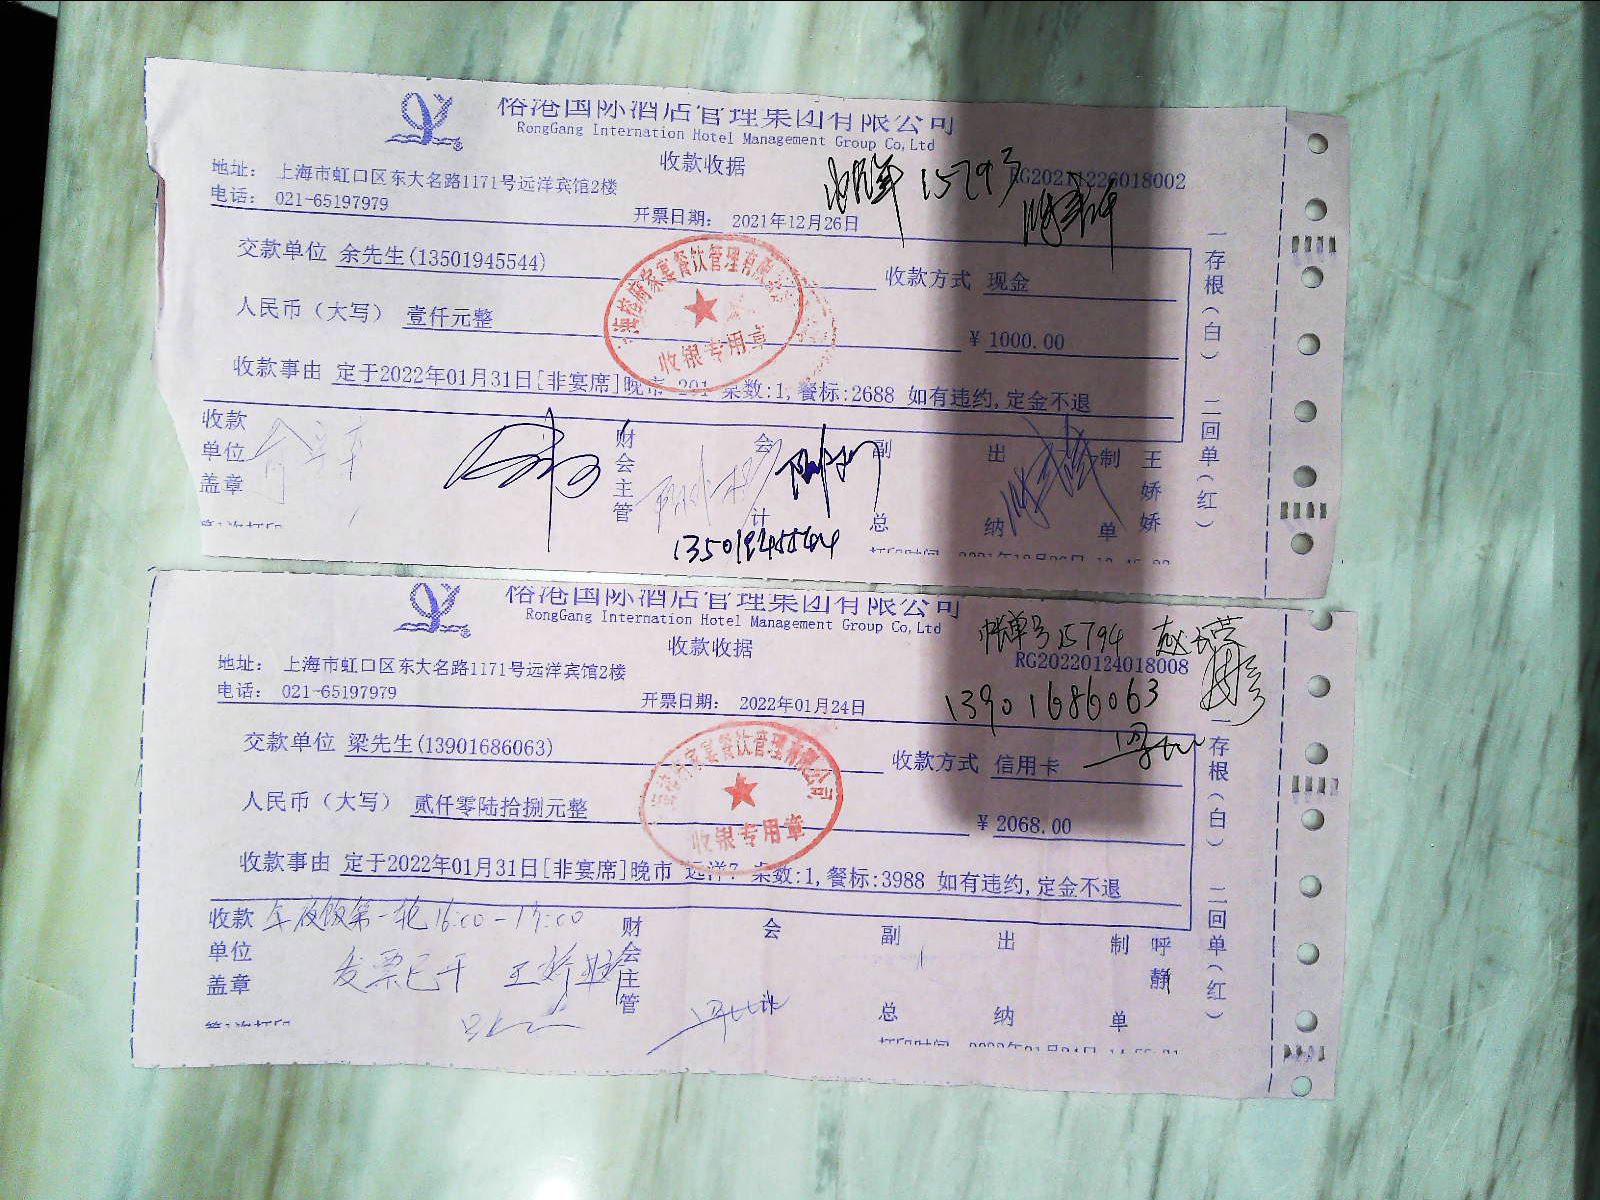 榕港国际酒店管理集团有限公司
RongGang Internation Hotel Management Group Co,Ltd
收款收据
15793
RG20211226018002
地址： 上海市虹口区东大名路1171号远洋宾馆2楼
电话： 021-65197979
开票日期： 2021年12月26日
交款单位 余先生(13501945544)
收款方式 现金
人民币（大写） 壹仟元整
￥1000.00
收款事由 定于2022年01月31日[非宴席]晚市 201 桌数:1,餐标:2688 如有违约,定金不退
收款单位盖章
财会主管
会计
副总
出纳
制单
王娇娇
一存根(白) 二回单(红)
收银专用章
13501945544
榕港国际酒店管理集团有限公司
RongGang Internation Hotel Management Group Co,Ltd
收款收据
帐单号15794
RG20220124018008
13901686063
地址： 上海市虹口区东大名路1171号远洋宾馆2楼
电话： 021-65197979
开票日期： 2022年01月24日
交款单位 梁先生(13901686063)
收款方式 信用卡
人民币（大写） 贰仟零陆拾捌元整
￥2068.00
收款事由 定于2022年01月31日[非宴席]晚市 远洋7 桌数:1,餐标:3988 如有违约,定金不退
收款单位盖章
年夜饭第一轮
发票已开 王娇娇
财会主管
会计
副总
出纳
制单
呼静
一存根(白) 二回单(红)
收银专用章